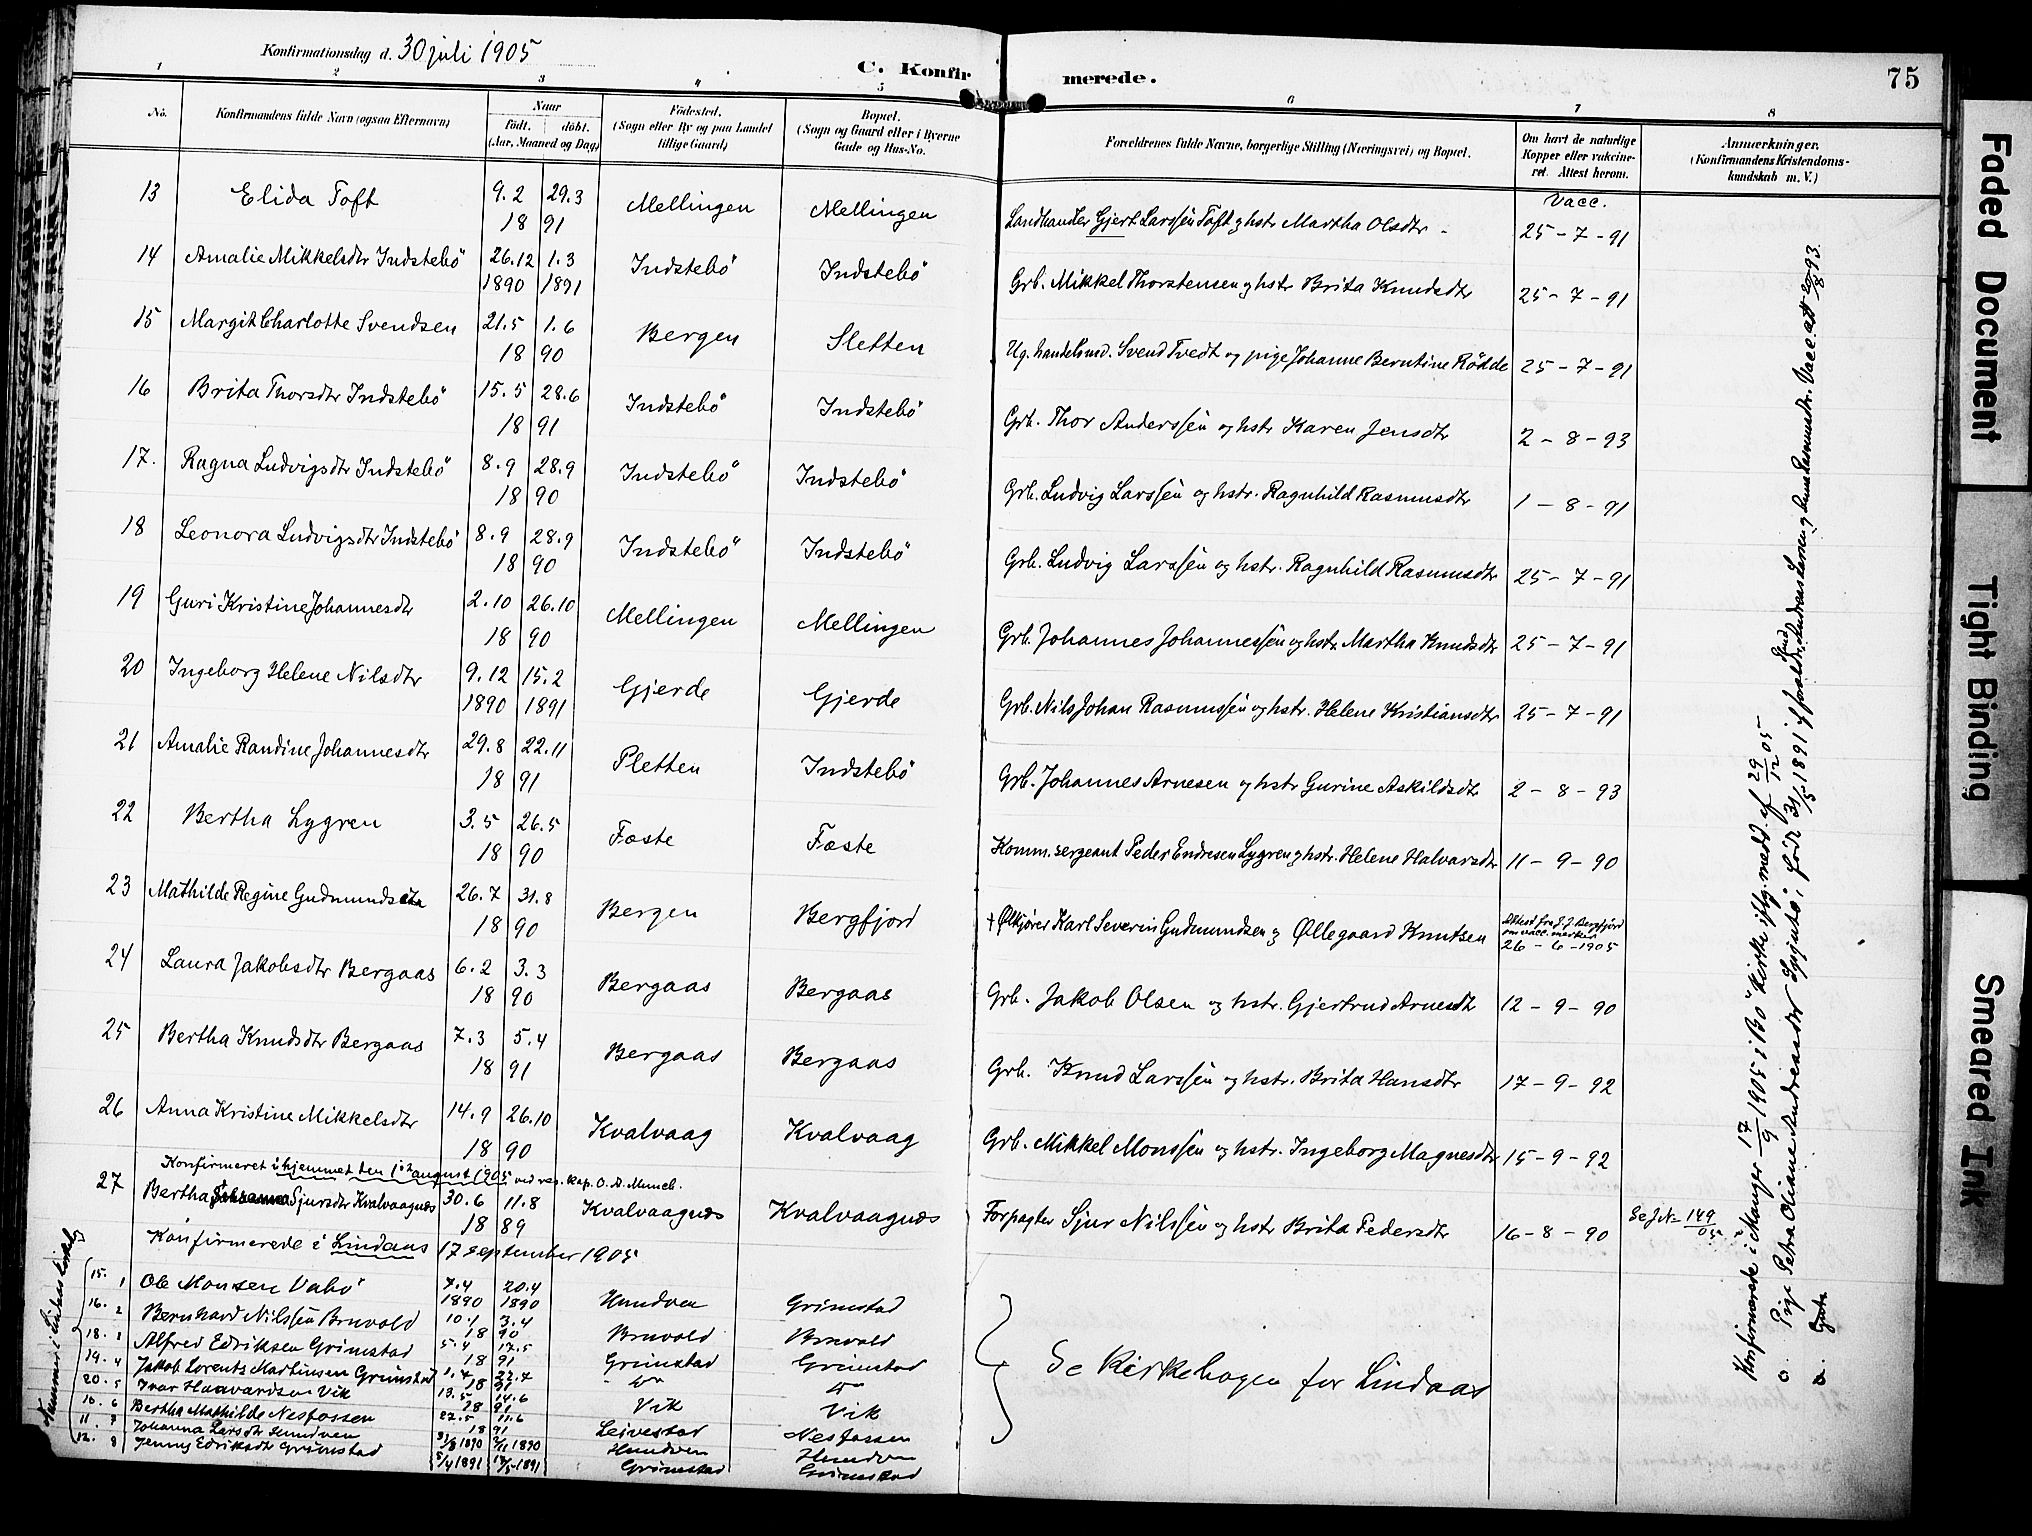 Konfirmationsdag d. 30 juli 1905
C. Konfirmerede.
75
1 2 3 4 5 6 7 8
No.
Konfirmandens fulde Navn (ogsaa Efternavn)
Naar
födt. döbt.
(Aar, Maaned og Dag)
Födested.
(Sogn eller By og paa Landet
tillige Gaard)
Bopæl.
(Sogn og Gaard eller i Byerne
Gade og Hus-No.
Forældrenes fulde Navne, borgerlige Stilling (Næringsvei) og Bopæl.
Om havt de naturlige
Kopper eller vakcine-
ret. Attest herom.
Anmærkninger.
(Konfirmandens Kristendoms-
kundskab m. V.)
Vacc.
13 Elida Toft 9.2 29.3 Mellingen Mellingen Landhandler Gjert Larssen Toft og hstr Martha Olsdtr - 25-7-91
18 91
14 Amalie Mikkelsdtr Indstebö 26.12 1.3 Indstebö Indstebö Grb. Mikkel Thorstensen og hstr Brita Knudsdtr 25-7-91
1890 1891
15 Margit Charlotte Svendsen 21.5 1.6 Bergen Sletten Ug. handelsmd. Svend Tvedt og pige Johanne Berntine Rödde 25-7-91
18 90
16 Brita Thorsdtr Indstebö 15.5 28.6 Indstebö Indstebö Grb. Thor Anderssen og hstr Karen Jensdtr 2-8-93
18 91
17. Ragna Ludvigsdtr Indstebö 8.9 28.9 Indstebö Indstebö Grb. Ludvig Larssen og hstr. Ragnhild Rasmusdtr 1-8-91
18 90
18 Leonora Ludvigsdtr Indstebö 8.9 28.9 Indstebö Indstebö Grb. Ludvig Larssen og hstr. Ragnhild Rasmusdtr 25-7-91
18 90
19 Guri Kristine Johannesdtr 2.10 26.10 Mellingen Mellingen Grb. Johannes Johannessen og hstr Martha Knudsdtr 25-7-91
18 90
20 Ingeborg Helene Nilsdtr 9.12 15.2 Gjerde Gjerde Grb. Nils Johan Rasmussen og hstr. Helene Kristiansdtr 25-7-91
1890 1891
21 Amalie Randine Johannesdtr 29.8 22.11 Pletten Indstebö Grb. Johannes Arnesen og hstr Gurine Askildsdtr 2-8-93
18 91
22 Bertha Lygren 3.5 26.5 Fæste Fæste Komm. sergeant Peder Endresen Lygren og hstr. Helene Halvarsdtr 11-9-90
18 90
23 Mathilde Regine Gudmundsen 26.7 31.8 Bergen Bergfjord + Ølkjører Karl Severin Gudmundsen og Øllegaard Knutsen Attest fra J. J. Bergfjord
om vacc. mærker
26-6-1905
18 90
24 Laura Jakobsdtr Bergaas 6.2 3.3 Bergaas Bergaas Grb. Jakob Olsen og hstr. Gjertrud Arnesdtr 12-9-90
18 90
25 Bertha Knudsdtr Bergaas 7.3 5.4 Bergaas Bergaas Grb. Knud Larssen og hstr. Brita Hansdtr 17-9-92
18 91
26 Anna Kristine Mikkelsdtr 14.9 26.10 Kvalvaag Kvalvaag Grb. Mikkel Monssen og hstr. Ingeborg Magnesdtr 15-9-92
18 90
Konfirmeret i hjemmet den 1ste august 1905 ved res. kap. O. A. Munch.
27 Bertha Johanna Sjursdtr Kvalvaagnes 30.6 11.8 Kvalvaagnæs Kvalvaagnæs Forpagter Sjur Nilssen og hstr Brita Pedersdtr 16-8-90 Se J.N. 149/05
18 89
Konfirmerede i Lindaas 17 september 1905
15. 1 Ole Monsen Vabö 7.4 20.4 Hundven Grimstad
1890 1890
16. 2 Bernhard Nilssen Bruvold 10.1 3.4 Bruvold Bruvold
18 90
18. 3 Alfred Edriksen Grimstad 5.4 17.5 Grimstad Grimstad
18 91
19. 4 Jakob Lorents Martinsen Grimstad 1.4 22.4 do do
18 91
20. 5 Ivar Haavardsen Vik 13.5 14.6 Vik Vik
18 91
10. 6 Bertha Mathilde Nesfossen 22.5 11.6 Leivestad Nesfossen
18 91
11. 7 Johanna Larsdtr Hundven 31/8 1890 2/11 1890 Hundven Hundven
12. 8 Jenny Edriksdtr Grimstad 5/4 1891 18/5 1891 Grimstad Grimstad
Se Kirkebogen for Lindaas
Konfirmerede i Manger 17/9 1905 i Bö kirke iflg. medd. af 29/12 05
Pige Petra Oliane Andreasdtr Spjutö, född 31/5 1891
Faded Document
Tight Binding
Smeared Ink